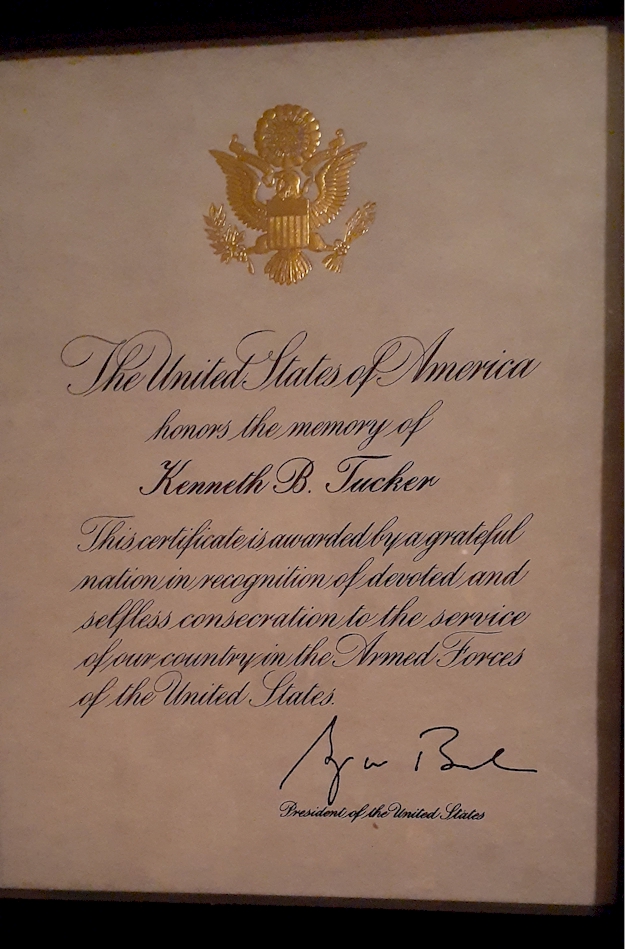 The United States of America
honors the memory of
Kenneth B. Tucker
This certificate is awarded by a grateful
nation in recognition of devoted and
selfless consecration to the service
of our country in the Armed Forces
of the United States.
President of the United States